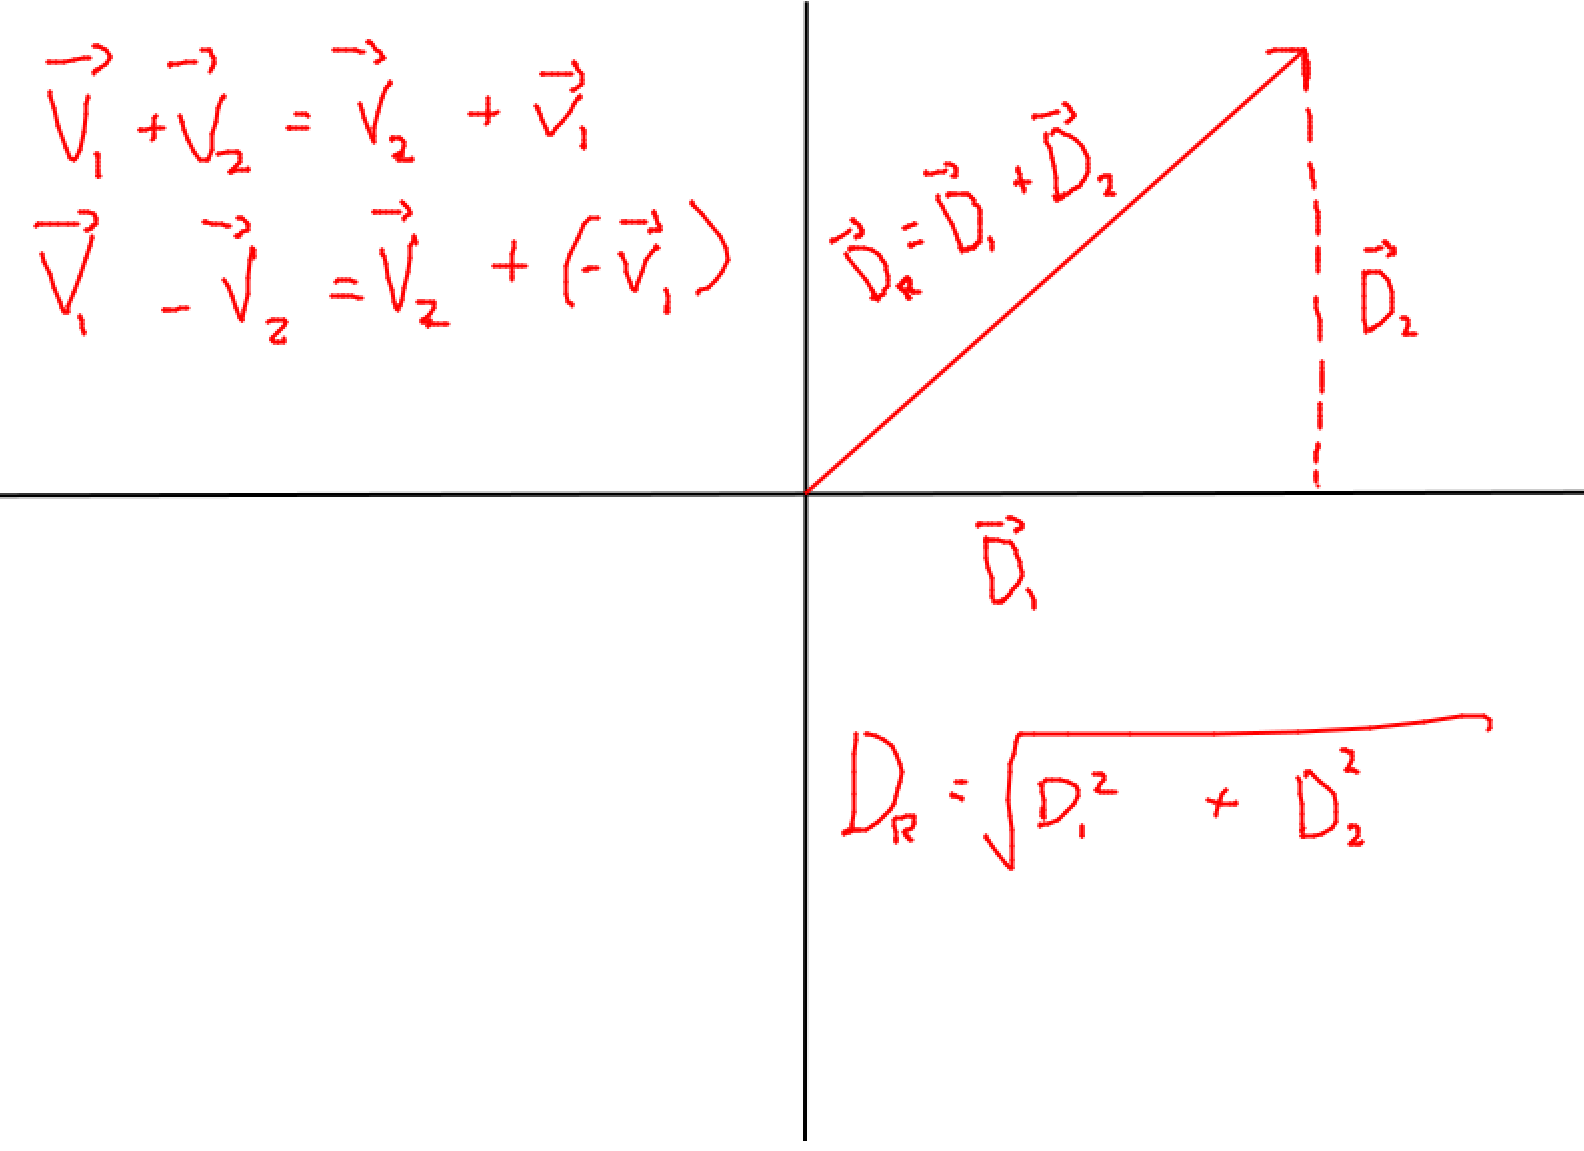 V⃗₁ + V⃗₂ = V⃗₂ + V⃗₁
V⃗₁ - V⃗₂ = V⃗₂ + (-V⃗₁)
D⃗_R = D⃗₁ + D⃗₂
D⃗₂
D⃗₁
D_R = √(D₁² + D₂²)